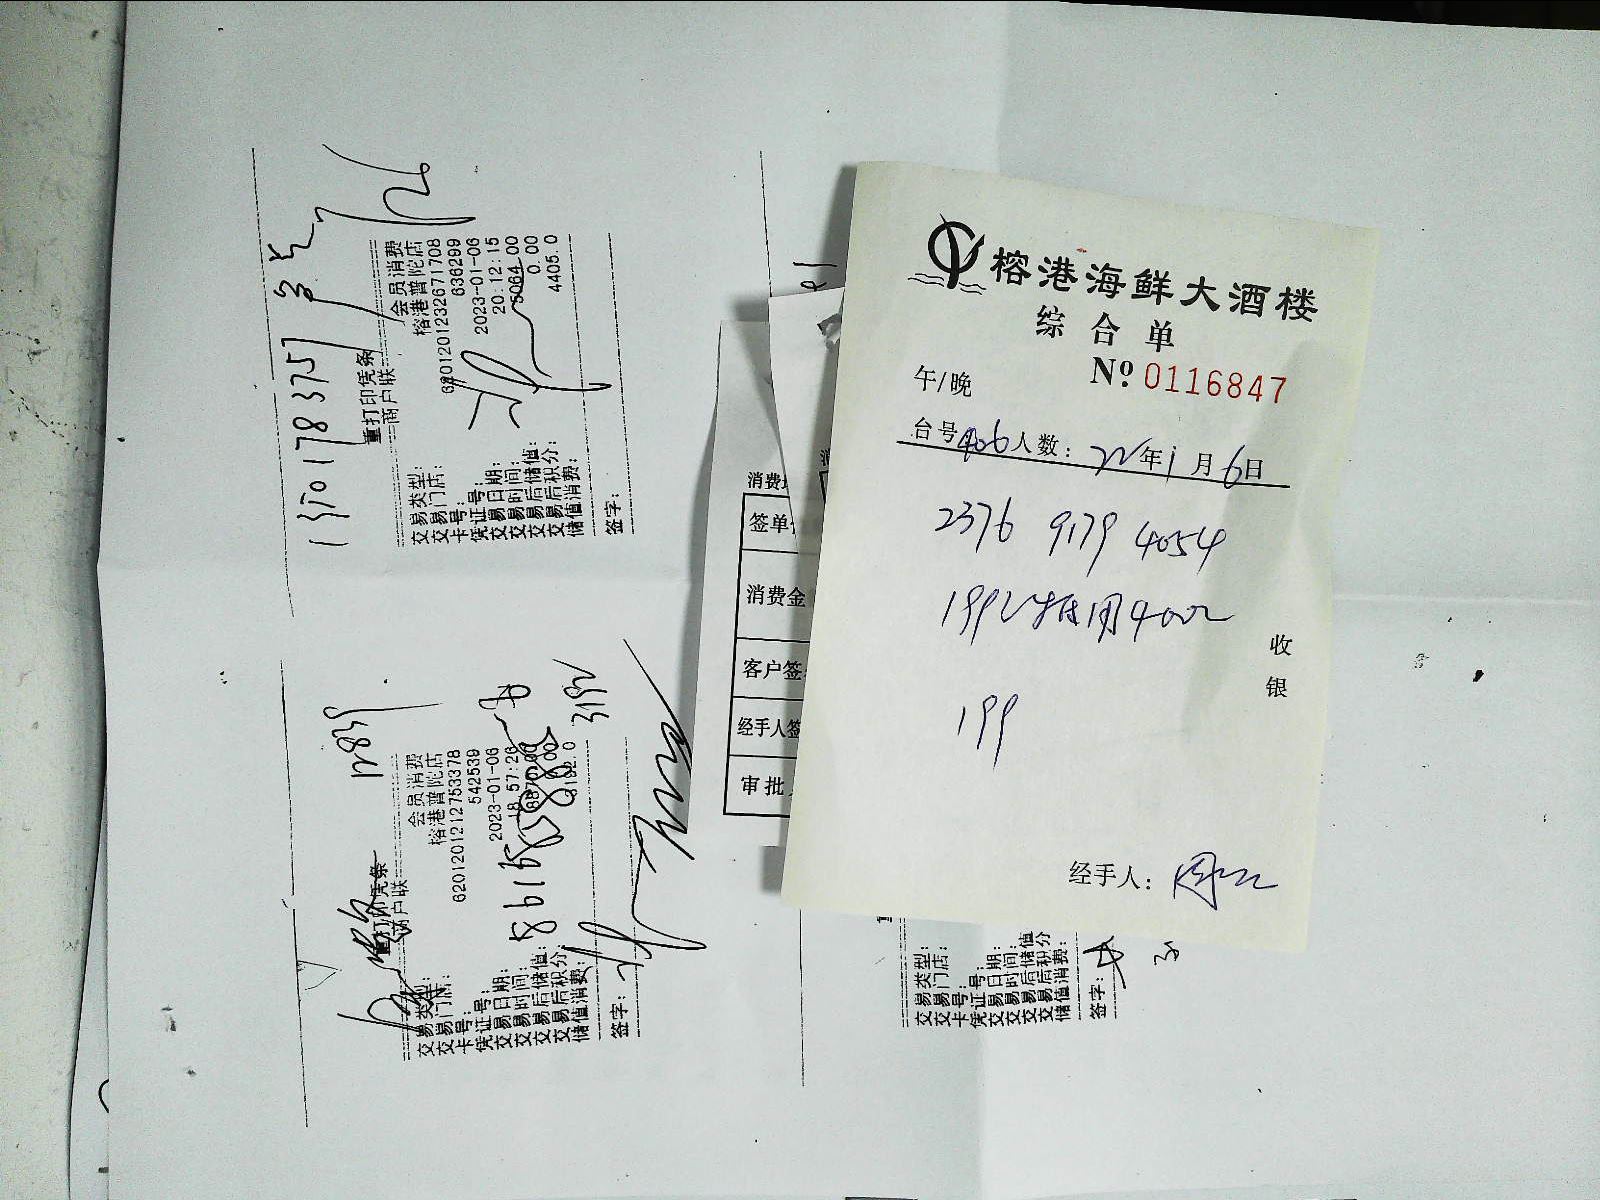 榕港海鲜大酒楼
综合单
No 0116847
午/晚
台号406人数: 22年1月6日
2376 9179 4054
199
收
银
经手人:
重打印凭条
商户联
交易类型: 会员消费
交易门店: 榕港普陀店
卡号: 6201201232671708
凭证号: 636299
交易日期: 2023-01-06
交易时间: 20:12:15
交易后储值: 5064.00
交易后积分: 0.00
储值消费: 4405.0
签字:
17839
重打印凭条
商户联
交易类型: 会员消费
交易门店: 榕港普陀店
卡号: 6201201212753378
凭证号: 542539
交易日期: 2023-01-06
交易时间: 18:57:26
交易后储值:
交易后积分:
储值消费:
3192
签字:
消费
签单
消费金
客户签
经手人签
审批
交易类型:
交易门店:
卡号:
凭证号:
交易日期:
交易时间:
交易后储值
交易后积分
储值消费:
签字: